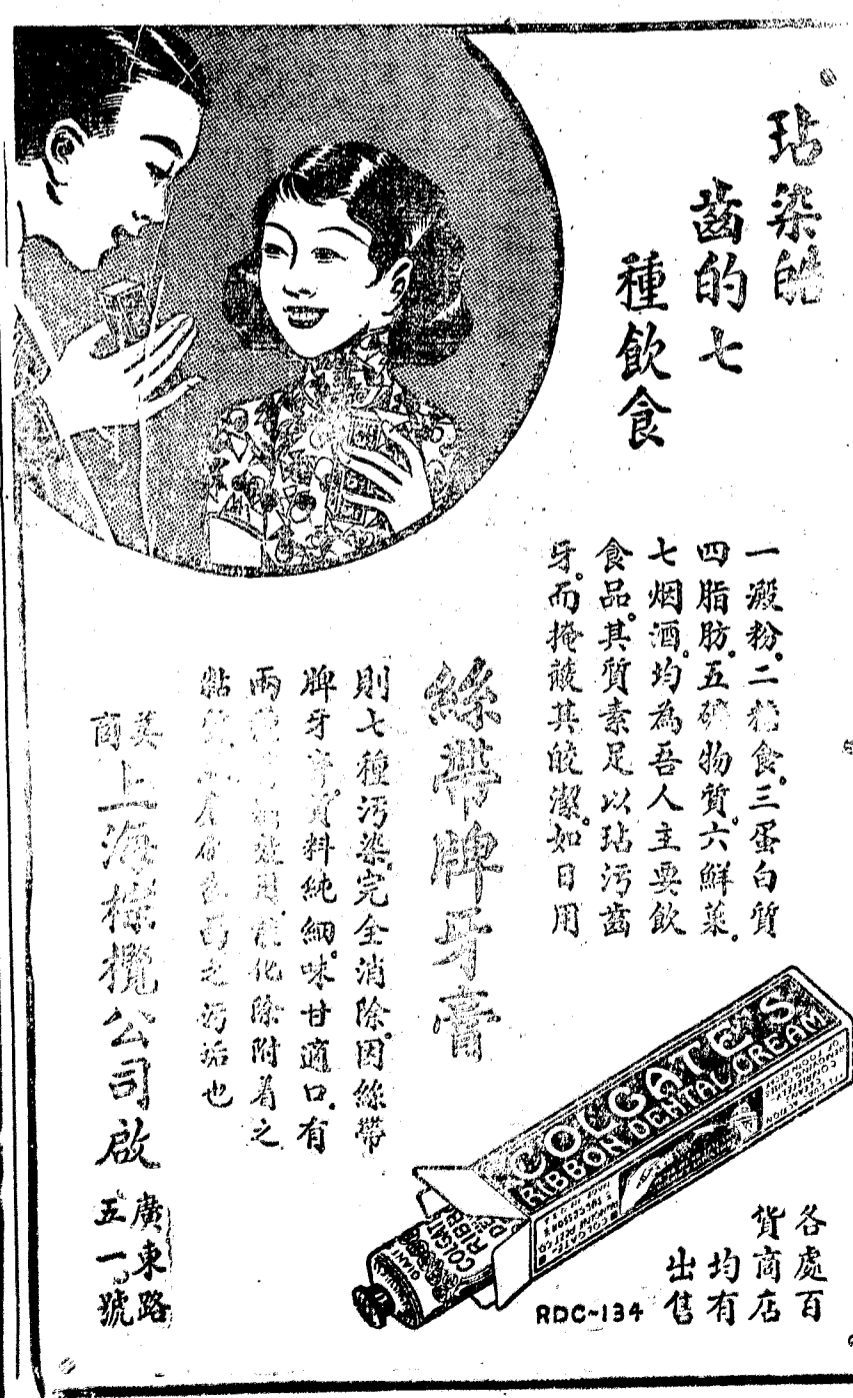 玷染皓
齒的七
種飲食
一澱粉。二糖食。三蛋白質
四脂肪。五礦物質。六鮮菓。
七烟酒。均為吾人主要飲
食品。其質素足以玷污齒
牙。而掩蔽其皎潔。如日用
絲帶牌牙膏
則七種污染。完全消除。因絲帶
牌牙膏。質料純細。味甘適口。有
兩 效用。能化除附着之
黏 之污垢也
英商
上海棕欖公司啟
廣東路
五一號
COLGATE'S
RIBBON DENTAL CREAM
COLGATE
RIBB
GIANT
RDC-134
各處百
貨商店
均有
出售